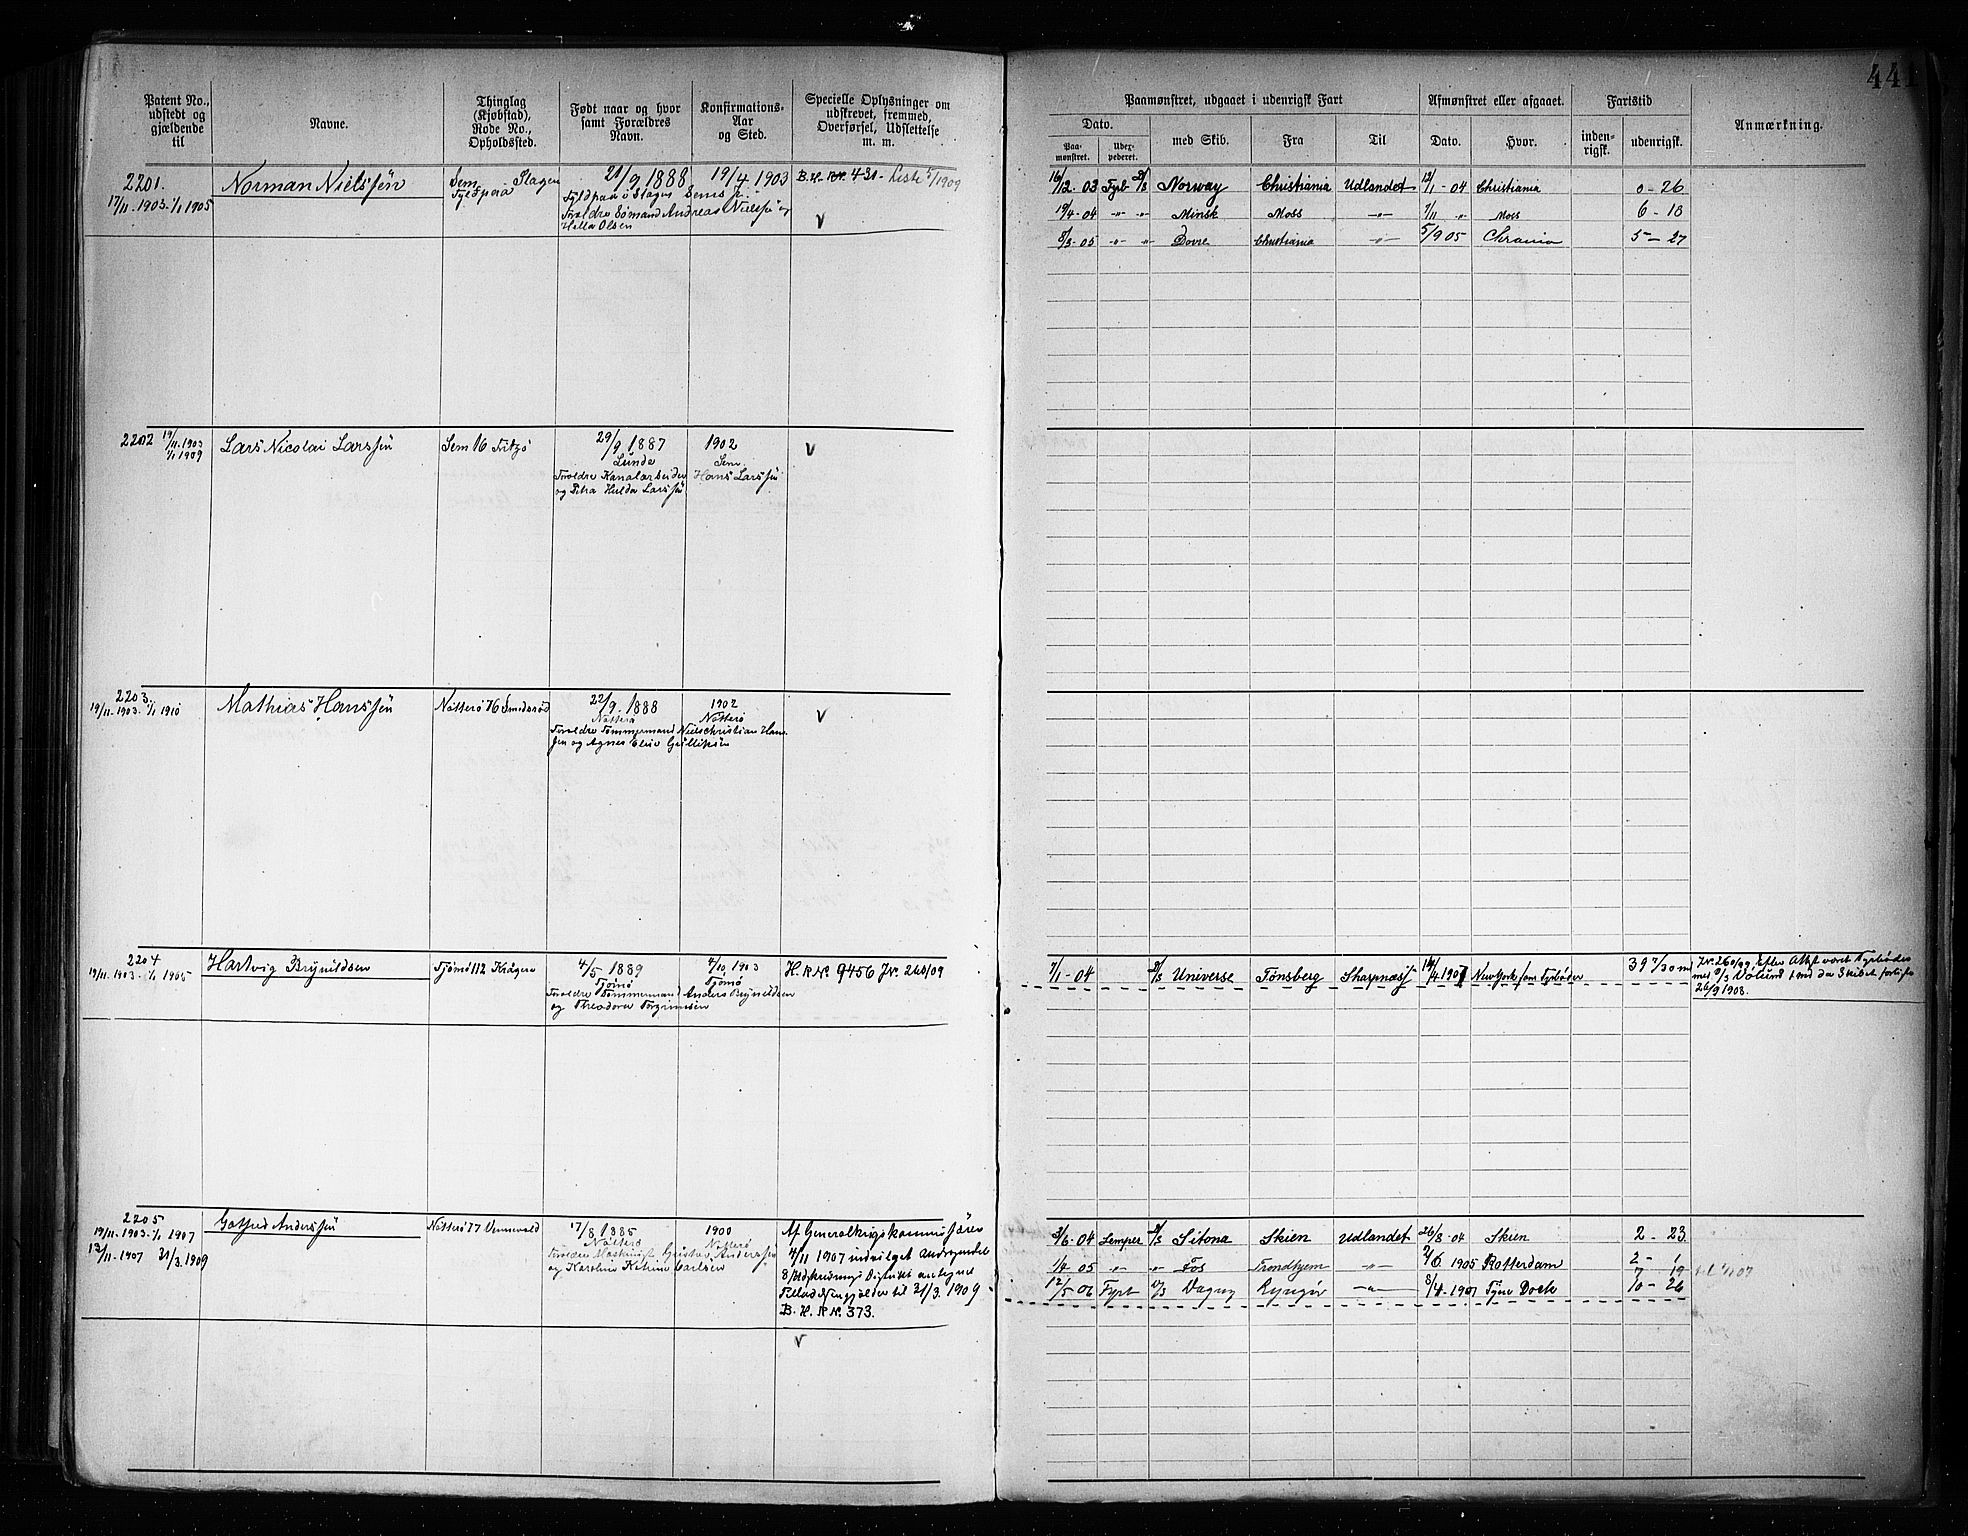 44
Patent No., udstedt og gjældende til
Navne.
Thinglag (Kjøbstad), Rode No., Opholdssted.
Født naar og hvor samt Forældres Navn.
Konfirmations-Aar og Sted.
Specielle Oplysninger om udskrevet, fremmed, Overførsel, Udslettelse m. m.
Paamønstret, udgaaet i udenrigsk Fart
Afmønstret eller afgaaet.
Fartstid
Anmærkning.
Dato.
Paa-mønstret.
med Skib.
Fra
Til
Dato.
Hvor.
inden-rigsk.
udenrigsk.
2201.
17/11-1903-1/1 1905
Norman Nielssen
Sem Slagen
21/9 1888
Forældre Sømand Andreas Nielssen og
Hella Olsen
19/4 1903
B. H. R. No. 431- Liste 5/1909
V
16/12-03 Fyrb Norway Christiania Udlandet 12/1-04 Christiania 0-26
19/4-04 -"- -"- Minsk Moss -"- 7/11 -"- Moss 6-18
8/3-05 -"- -"- Dovre Christiania -"- 5/9 05 Chrania 5-27
2202 19/11-1903
1/1 1909
Lars Nicolai Larssen
Sem 16
29/9 1887
Lunde
Forældre Kanalarbeider Hans Larssen
og Petra Hulda Larssen
1902
Sem
V
2203.
19/11-1903-1/1 1910
Mathias Hanssen
Nøtterø 76 Smidsrød
22/9 1888
Nøtterø
Forældre Tømmermand Niels Christian Hans-
sen og Agnes Eline Gulliksen
1902
Nøtterø
V
2204
19/11-1903-1/1 1905
Hartvig Brynildsen
Tjømø 112 Krågerø
4/5 1889
Tjømø
Forældre Tømmermand Anders Brynildsen
og Theodora Torgrimsen
4/10 1903
Tjømø
H R No. 9456 Jr. 268/09
7/1-04 Universe Tønsberg Sharpness 14/4 1907 New York som Fyrbøder 39 7/30 m
Jr. 260/09 Efter Attest været Fyrbøder
26/9 1908.
2205
19/11-1903-1/1 1907
12/11-1907 31/3 1909
Gotfred Anderssen
Nøtterø 77
17/8 1885
Nøtterø
Forældre Maskinist Gustav Anderssen
og Karoline Katrine Carlsen
1900
Nøtterø
Af Generalkrigskommissæren
4/11 1907 indvilget Andragende
Udskrivnings Distrikt
til 31/3 1909
B. H. R No. 373.
V
3/6-04 Lemper Sitona Skien Udlandet 26/8-04 Skien 2-23
1/4 05 -"- Fos Trondhjem -"- 2/6 1905 Rotterdam 2-1
7-19
12/5 06 Fyrb Dagny Lyngør -"- 8/4-1907 Tyne Dock 10-26